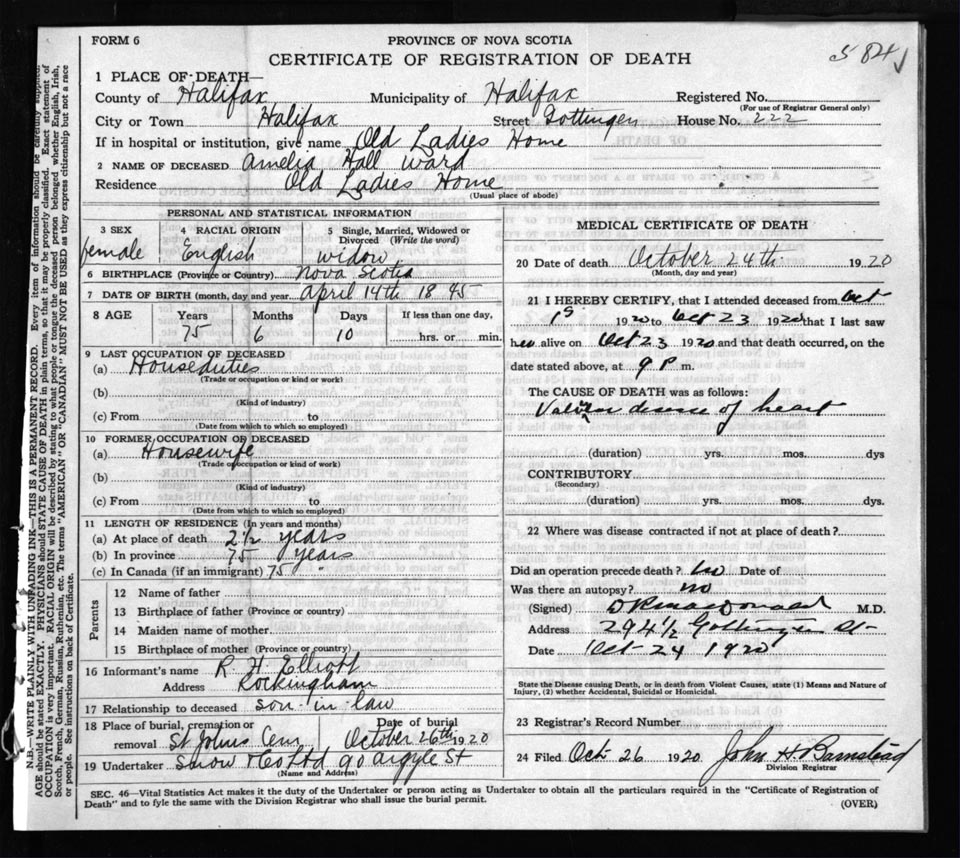 FORM 6
PROVINCE OF NOVA SCOTIA
584
CERTIFICATE OF REGISTRATION OF DEATH
1 PLACE OF DEATH—
County of Halifax Municipality of Halifax Registered No.
(For use of Registrar General only)
City or Town Halifax Street Gottingen House No. 222
If in hospital or institution, give name Old Ladies Home
2 NAME OF DECEASED Amelia Hall Ward
Residence Old Ladies Home
(Usual place of abode)
PERSONAL AND STATISTICAL INFORMATION
3 SEX 4 RACIAL ORIGIN 5 Single, Married, Widowed or Divorced (Write the word)
female English widow
6 BIRTHPLACE (Province or Country) Nova Scotia
7 DATE OF BIRTH (month, day and year April 14th 1845
8 AGE Years Months Days If less than one day,
75 6 10 hrs. or min.
9 LAST OCCUPATION OF DECEASED
(a) Houseduties
(Trade or occupation or kind or work)
(b)
(Kind of industry)
(c) From to
(Date from which to which so employed)
10 FORMER OCCUPATION OF DECEASED
(a) Housewife
(Trade or occupation or kind or work)
(b)
(Kind of industry)
(c) From to
(Date from which to which so employed)
11 LENGTH OF RESIDENCE (In years and months)
(a) At place of death 2½ years
(b) In province 75 years
(c) In Canada (if an immigrant) 75
Parents
12 Name of father
13 Birthplace of father (Province or country)
14 Maiden name of mother
15 Birthplace of mother (Province or country)
16 Informant's name R. H. Elliott
Address Rockingham
17 Relationship to deceased son-in-law
18 Place of burial, cremation or removal St Johns Cem Date of burial October 26th 1920
19 Undertaker Snow & Co Ltd 90 Argyle St
(Name and Address)
MEDICAL CERTIFICATE OF DEATH
20 Date of death October 24th 1920
(Month, day and year)
21 I HEREBY CERTIFY, that I attended deceased from Oct
1st 1920 to Oct 23 1920 that I last saw
her alive on Oct 23 1920 and that death occurred, on the
date stated above, at 9 P m.
The CAUSE OF DEATH was as follows:
disease of heart
(duration) yrs. mos. dys
CONTRIBUTORY
(Secondary)
(duration) yrs. mos. dys.
22 Where was disease contracted if not at place of death?
Did an operation precede death? No Date of
Was there an autopsy? no
(Signed) MacDonald M.D.
Address 294½ Gottingen St
Date Oct 24 1920
State the Disease causing Death, or in death from Violent Causes, state (1) Means and Nature of
Injury, (2) whether Accidental, Suicidal or Homicidal.
23 Registrar's Record Number
24 Filed Oct 26 1920 John H Barnstead
Division Registrar
SEC. 46—Vital Statistics Act makes it the duty of the Undertaker or person acting as Undertaker to obtain all the particulars required in the "Certificate of Registration of
Death" and to fyle the same with the Division Registrar who shall issue the burial permit.
(OVER)
N.B.—WRITE PLAINLY WITH UNFADING INK—THIS IS A PERMANENT RECORD. Every item of information should be carefully supplied.
AGE should be stated EXACTLY. PHYSICIANS should STATE CAUSE OF DEATH in plain terms, so that it may be properly classified. Exact statement of
OCCUPATION is very important. RACIAL ORIGIN will be described by stating to what people or tongue the deceased person belonged whether English, Irish,
Scotch, French, German, Russian, Ruthenian, etc. The terms "AMERICAN" or "CANADIAN" MUST NOT BE USED as they express citizenship but not a race
or people. See instructions on back of Certificate.